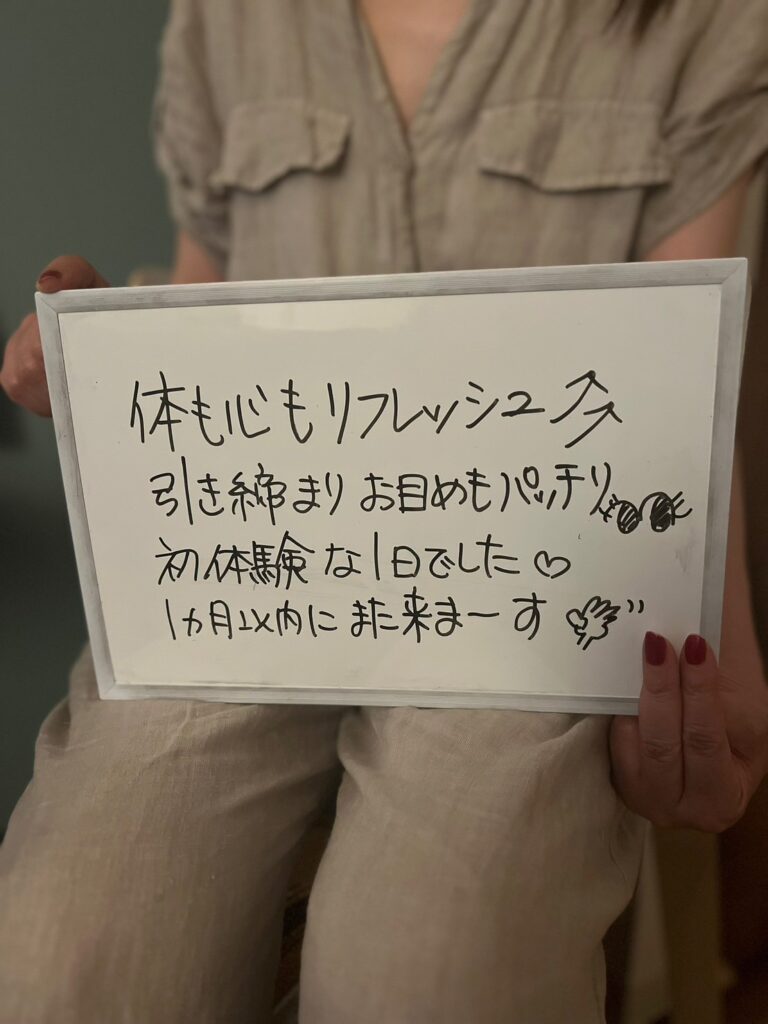 体も心もリフレッシュ↗↗
引き締まり お目めもパッチリ
初体験な1日でした♡
1ヵ月以内にまた来まーす